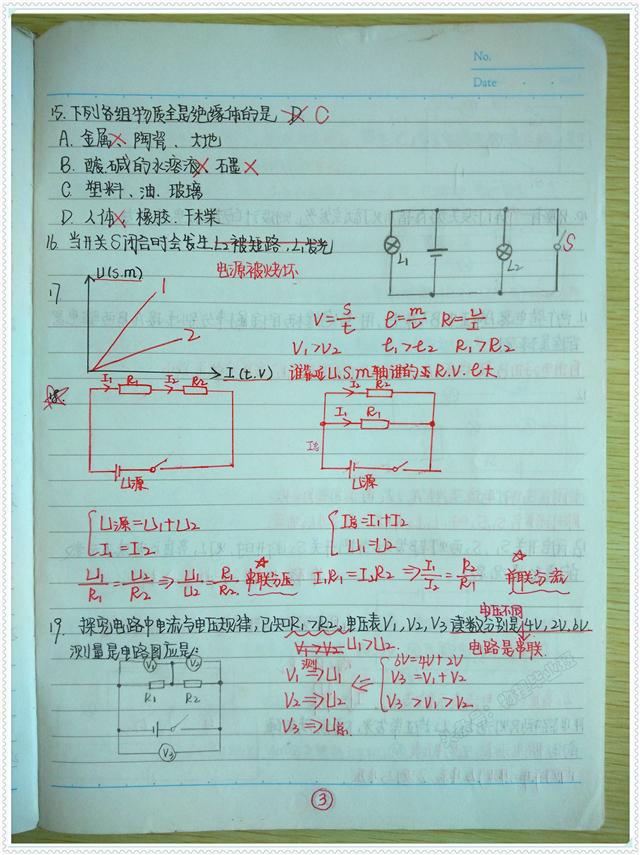 No.
Date
15. 下列各组物质全是绝缘体的是 D C
A. 金属、陶瓷、大地
B. 酸碱的水溶液、石墨
C. 塑料、油、玻璃
D. 人体、橡胶、干柴
16. 当开关S闭合时会发生L2被短路,L1发光
电源被烧坏
L1 L2 S
17
U(s.m)
1
2
I(t.v)
V=s/t ρ=m/v R=U/I
V1>V2 ρ1>ρ2 R1>R2
谁靠近U.S.m轴谁的 R.V.ρ大
18.
I1 R1 I2 R2
U源
I2 R2
I1 R1
I总
U源
U源=U1+U2
I1=I2
I总=I1+I2
U1=U2
U1/R1=U2/R2 ⇒ U1/U2=R1/R2 串联分压
I1R1=I2R2 ⇒ I1/I2=R2/R1 并联分流
19. 探究电路中电流与电压规律,已知R1>R2,电压表V1,V2,V3读数分别是4V,2V,6V
电压不同
测量是电路图应是:
V1>V2 U1>U2
电路是串联
V1 V2
R1 R2
V3
测
V1⇒U1
V2⇒U2
V3⇒U总
6V=4V+2V
V3=V1+V2
V3>V1>V2
③